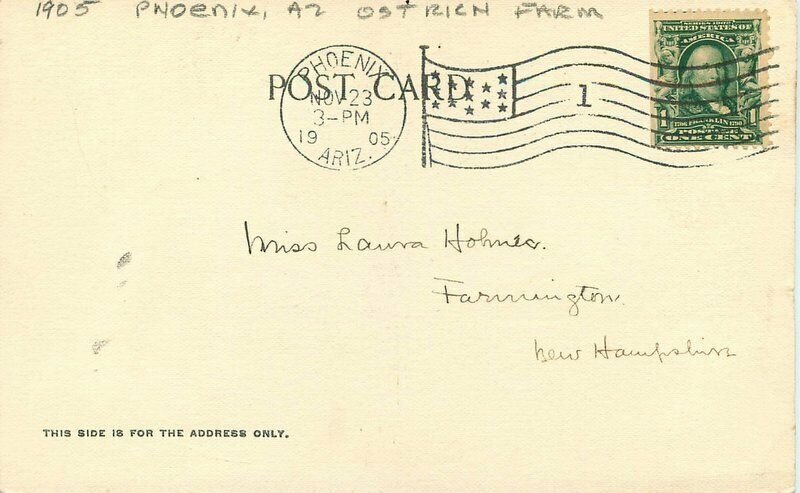 1905 PHOENIX, AZ OSTRICH FARM
POST CARD
PHOENIX
NOV 23
3-PM
19 05
ARIZ.
1
SERIES 1902
UNITED STATES OF
AMERICA
1706 FRANKLIN 1790
1 POSTAGE 1
ONE CENT
Miss Laura Holmes.
Farmington.
New Hampshire
THIS SIDE IS FOR THE ADDRESS ONLY.